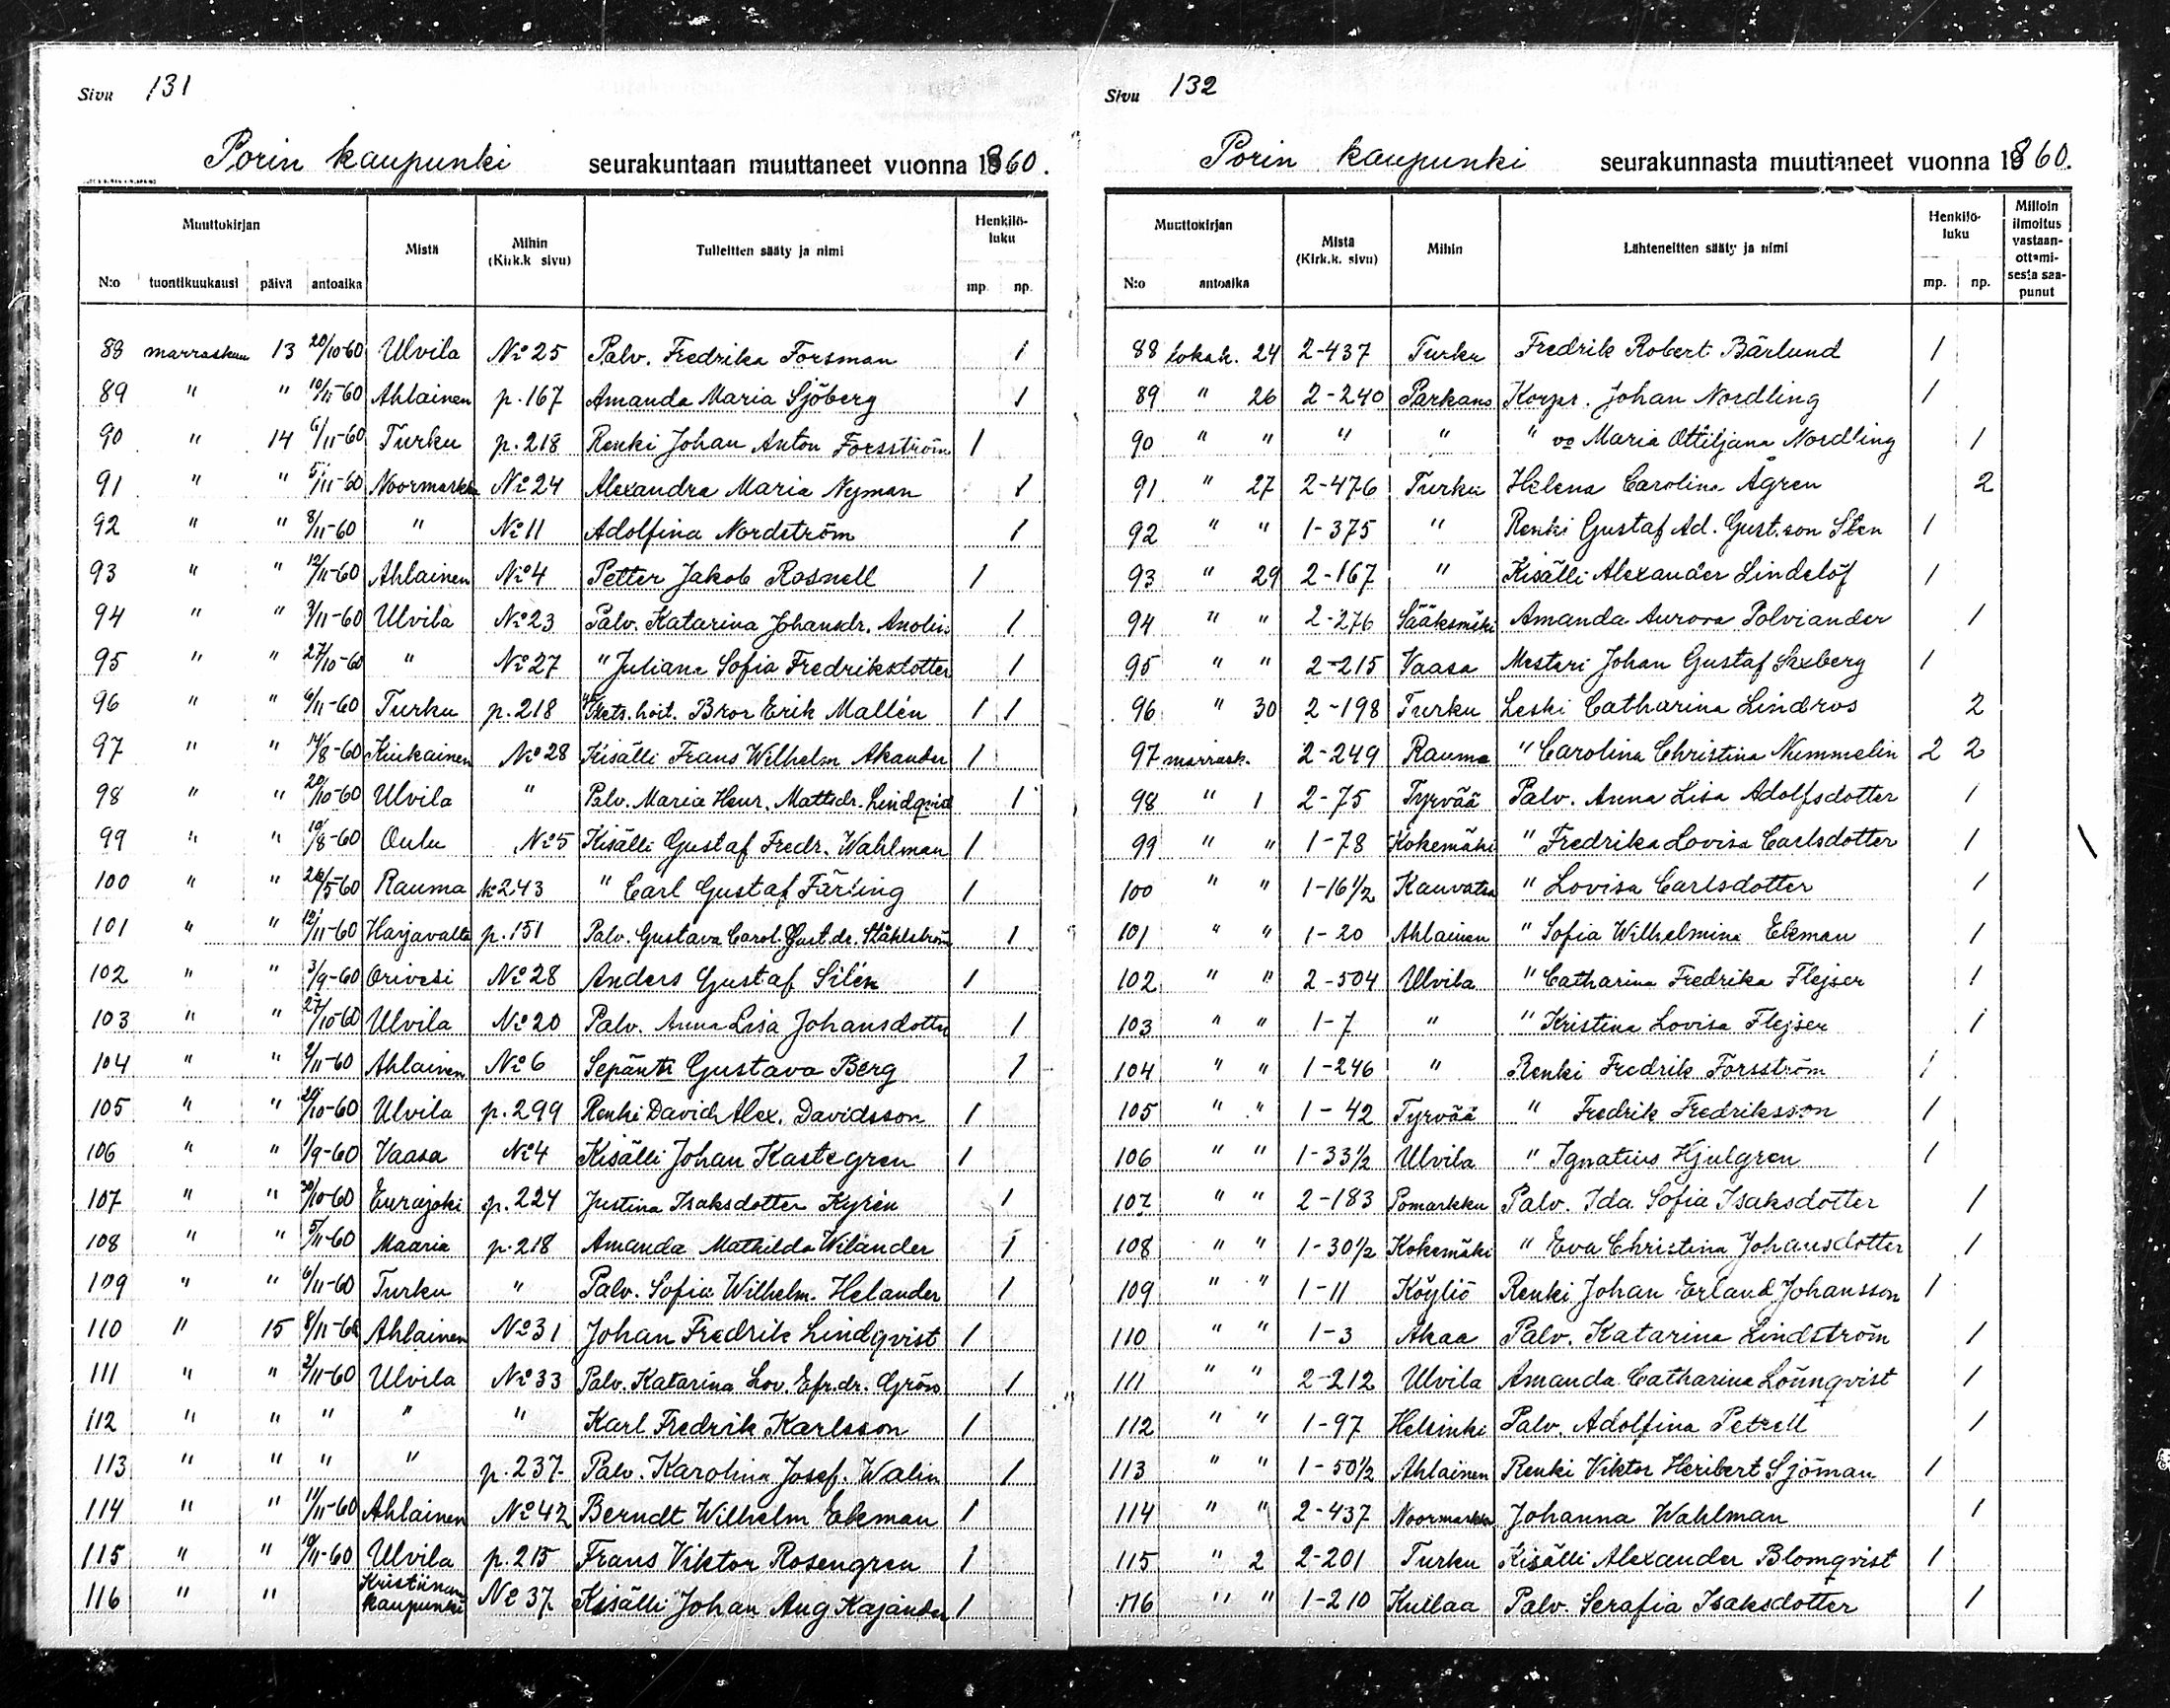 Sivu 131
Porin kaupunki seurakuntaan muuttaneet vuonna 1860.
Muuttokirjan Mistä Mihin (Kirk.k sivu) Tulleitten sääty ja nimi Henkilö-luku
N:o tuontikuukausi päivä antoaika mp. np.
88 marraskuu 13 20/10-60 Ulvila No 25 Palv. Fredrika Forsman 1
89 " " 10/11-60 Ahlainen p.167 Amanda Maria Sjöberg 1
90 " 14 6/11-60 Turku p.218 Renki Johan Anton Forsström 1
91 " " 5/11-60 Noormarkku No 24 Alexandra Maria Nyman 1
92 " " 8/11-60 " No 11 Adolfina Nordström 1
93 " " 12/11-60 Ahlainen No 4 Petter Jakob Rosnell 1
94 " " 3/11-60 Ulvila No 23 Palv. Katarina Johansdr. 1
95 " " 27/10-60 " No 27 " Juliana Sofia Fredriksdotter 1
96 " " 6/11-60 Turku p.218 Mets. hoit. Bror Erik Mallén 1 1
97 " " 14/8-60 Kiukainen No 28 Kisälli Frans Wilhelm Akander 1
98 " " 20/10-60 Ulvila " Palv. Maria Henr. Mattsdr. Lindqvist 1
99 " " 10/8-60 Oulu No 5 Kisälli Gustaf Fredr. Wahlman 1
100 " " 26/5-60 Rauma No 243 " Carl Gustaf Färling 1
101 " " 12/11-60 Harjavalta p.151 Palv. Gustava Carol. Gust.dr. Ståhlström 1
102 " " 3/9-60 Orivesi No 28 Anders Gustaf Silén 1
103 " " 27/10-60 Ulvila No 20 Palv. Anna Lisa Johansdotter 1
104 " " 9/11-60 Ahlainen No 6 Sepäntr Gustava Berg 1
105 " " 29/10-60 Ulvila p.299 Renki David Alex. Davidsson 1
106 " " 1/9-60 Vaasa No 4 Kisälli Johan Kastegren 1
107 " " 30/10-60 Eurajoki p.224 Justina Isaksdotter Kyrén 1
108 " " 5/11-60 Maaria p.218 Amanda Mathilda Wilander 1
109 " " 6/11-60 Turku " Palv. Sofia Wilhelm. Helander 1
110 " 15 8/11-60 Ahlainen No 31 Johan Fredrik Lindqvist 1
111 " " 2/11-60 Ulvila No 33 Palv. Katarina Lov. Efr.dr. Grön 1
112 " " " " " Karl Fredrik Karlsson 1
113 " " " " p.237 Palv. Karolina Josef. Walin 1
114 " " 11/11-60 Ahlainen No 42 Berndt Wilhelm Ekman 1
115 " " 10/11-60 Ulvila p.215 Frans Viktor Rosengren 1
116 " " Kristiinankaupunki No 37 Kisälli Johan Aug Kajander 1
Sivu 132
Porin kaupunki seurakunnasta muuttaneet vuonna 1860.
Muuttokirjan Mistä (Kirk.k. sivu) Mihin Lähteneitten sääty ja nimi Henkilö-luku Milloin ilmoitus vastaan-ottami-sesta saa-punut
N:o antoaika mp. np.
88 lokak. 24 2-437 Turku Fredrik Robert Bärlund 1
89 " 26 2-240 Parkano Korpr. Johan Nordling 1
90 " " " " " vo Maria Ottiljana Nordling 1
91 " 27 2-476 Turku Helena Carolina Ågren 2
92 " " 1-375 " Renki Gustaf Ad. Gust.son Sten 1
93 " 29 2-167 " Kisälli Alexander Lindelöf 1
94 " " 2-276 Sääksmäki Amanda Aurora Polviander 1
95 " " 2-215 Vaasa Mestari Johan Gustaf Saxberg 1
96 " 30 2-198 Turku Leski Catharina Lindros 2
97 marrask. 2-249 Rauma " Carolina Christina Nummelin 2 2
98 " 1 2-75 Tyrvää Palv. Anna Lisa Adolfsdotter 1
99 " " 1-78 Kokemäki " Fredrika Lovisa Carlsdotter 1
100 " " 1-16 1/2 Kauvatsa " Lovisa Carlsdotter 1
101 " " 1-20 Ahlainen " Sofia Wilhelmina Ekman 1
102 " " 2-504 Ulvila " Catharina Fredrika Flejser 1
103 " " 1-7 " " Kristina Lovisa Flejser 1
104 " " 1-246 " Renki Fredrik Forsström 1
105 " " 1-42 Tyrvää " Fredrik Fredriksson 1
106 " " 1-33 1/2 Ulvila " Ignatius Hjulgren 1
107 " " 2-183 Pomarkku Palv. Ida Sofia Isaksdotter 1
108 " " 1-30 1/2 Kokemäki " Eva Christina Johansdotter 1
109 " " 1-11 Köyliö Renki Johan Erland Johansson 1
110 " " 1-3 Akaa Palv. Katarina Lindström 1
111 " " 2-212 Ulvila Amanda Catharina Lönnqvist 1
112 " " 1-97 Helsinki Palv. Adolfina Petrell 1
113 " " 1-50 1/2 Ahlainen Renki Viktor Heribert Sjöman 1
114 " " 2-437 Noormarkku Johanna Wahlman 1
115 " 2 2-201 Turku Kisälli Alexander Blomqvist 1
116 " " 1-210 Kullaa Palv. Serafia Isaksdotter 1